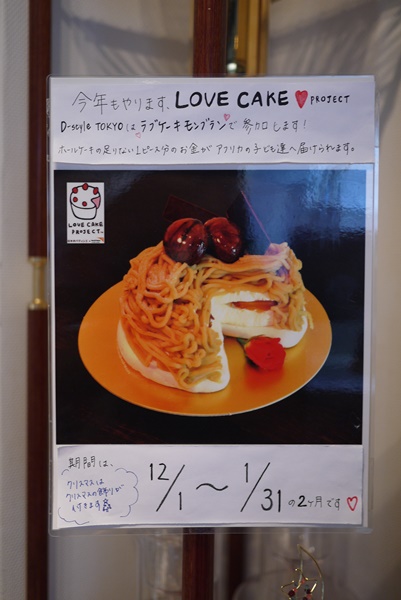 今年もやります、LOVE CAKE PROJECT
D-style TOKYOはラブケーキモンブランで参加します!
ホールケーキの足りない1ピース分のお金がアフリカの子ども達へ届けられます。
LOVE CAKE
PROJECT
期間は、
12/1 〜 1/31 の2ヶ月です
クリスマスは
クリスマスの飾りが
付きます